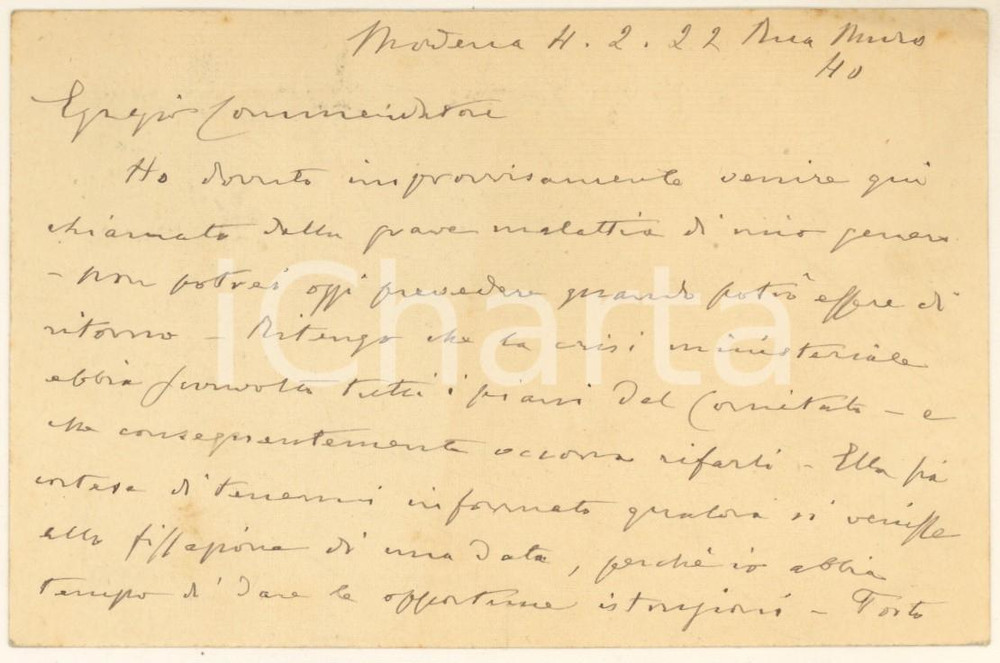 Modena 4.2.22 Rua Muro
40
Egregio Commendatore
Ho dovuto improvvisamente venire qui
chiamato dalla grave malattia di mio genero
- non potrei oggi prevedere quando potrò essere di
ritorno - Ritengo che la crisi ministeriale
abbia sconvolto tutti i piani del Comitato - e
che conseguentemente occorra rifarli - Ella sia
cortese di tenermi informato qualora si venisse
alla fissazione di una data, perchè io abbia
tempo di dare le opportune istruzioni - Tosto
iCharta